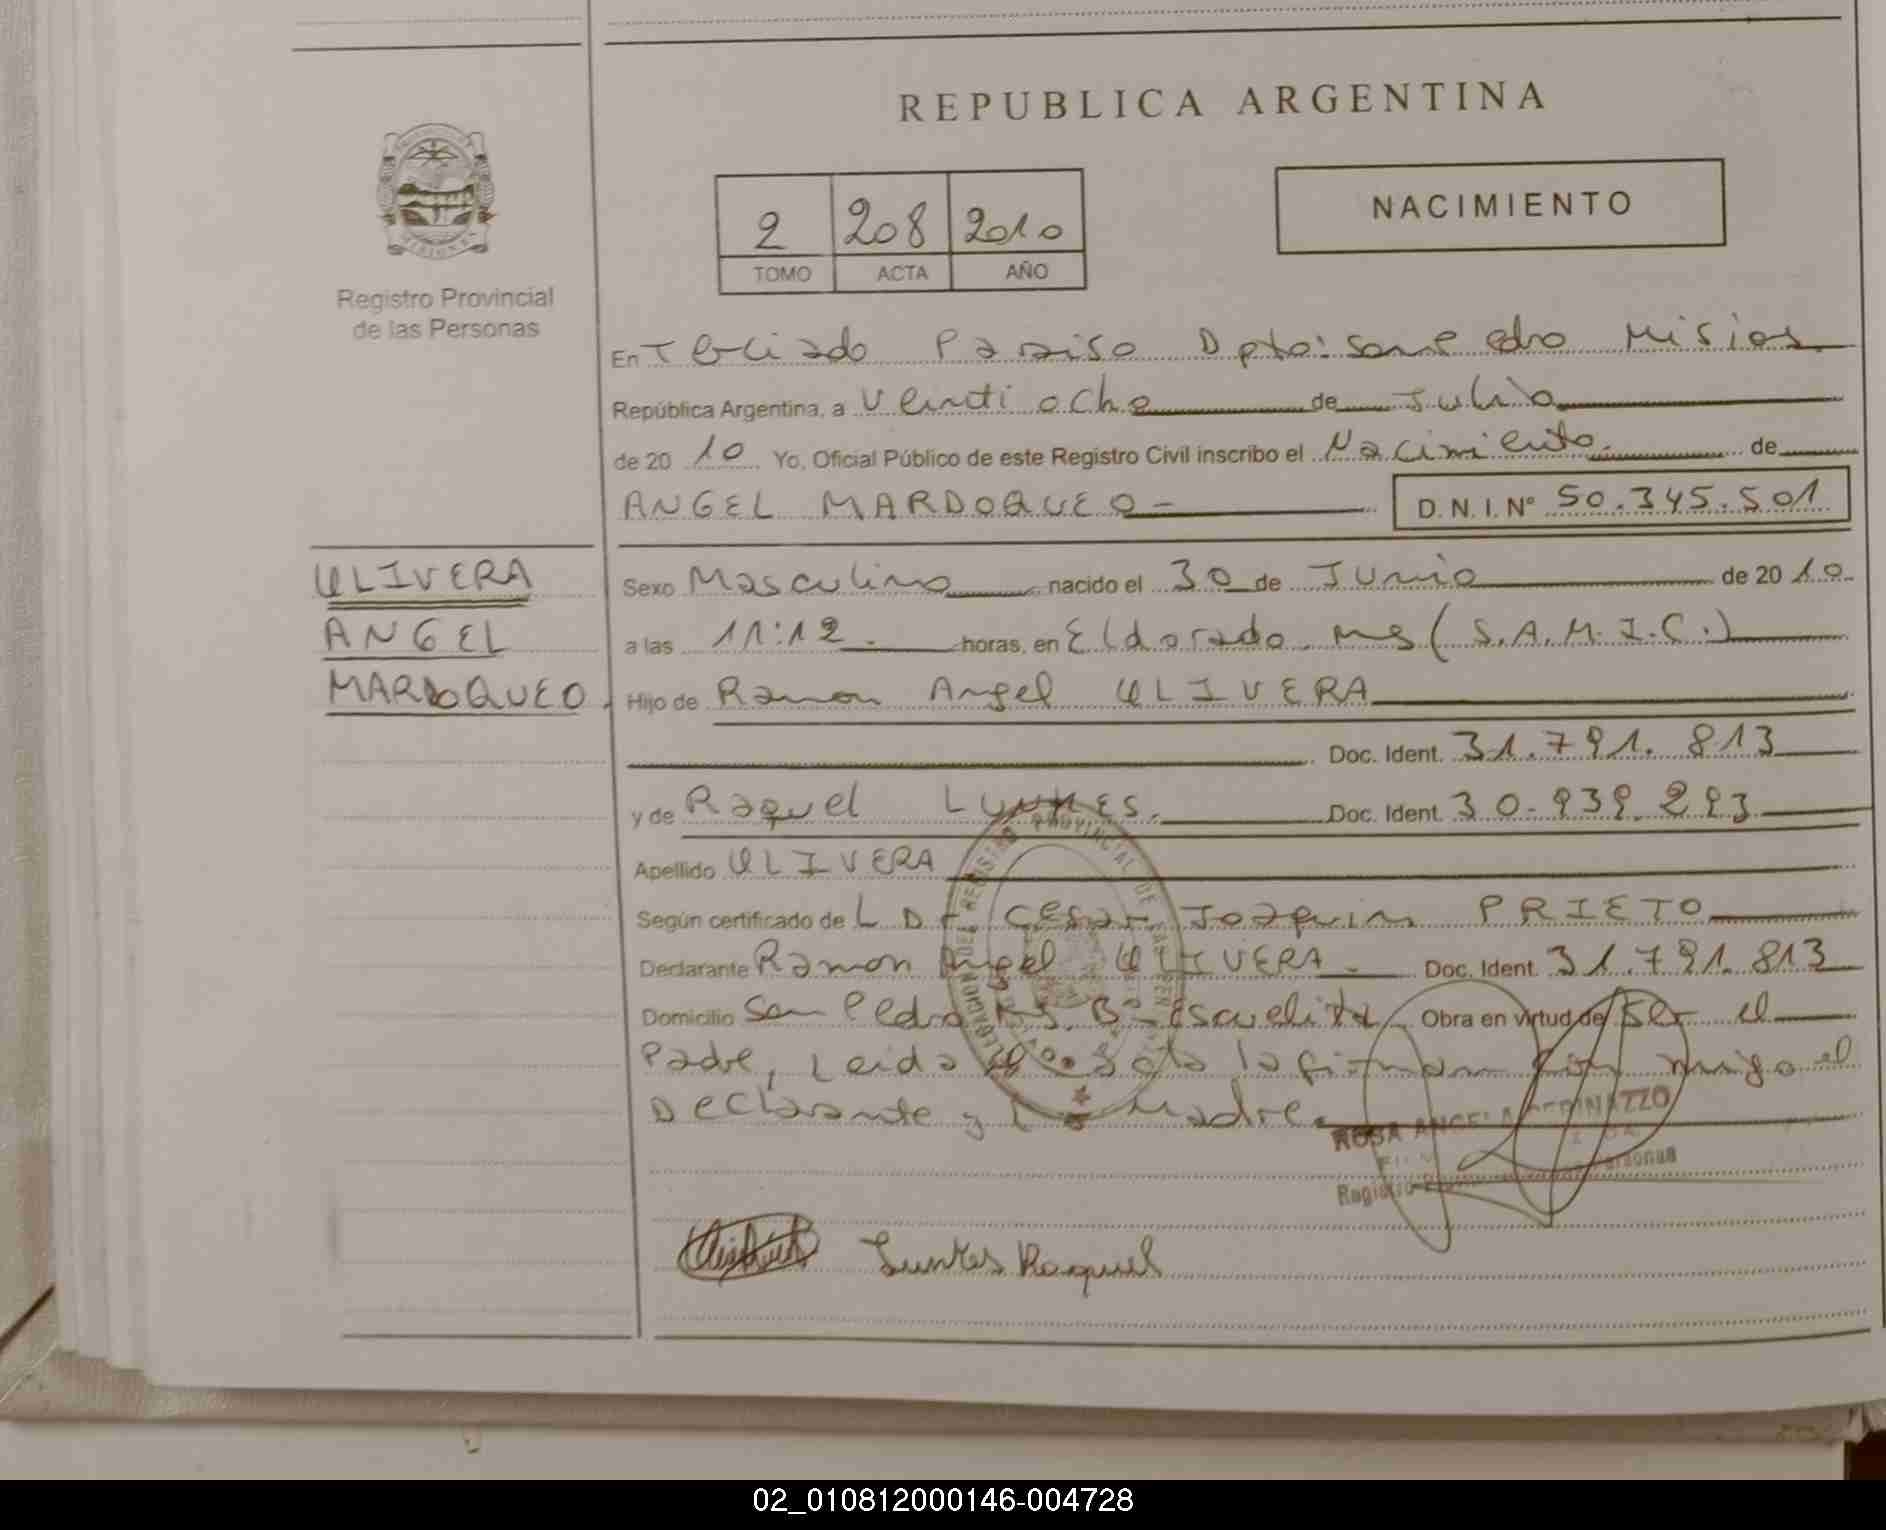 REPUBLICA ARGENTINA
NACIMIENTO
2 208 2010
TOMO ACTA AÑO
MISIONES
Registro Provincial
de las Personas
En Terciado Paraiso Dpto: San Pedro Misiones
República Argentina, a Veinti ocho de Julio
de 20 10 Yo, Oficial Público de este Registro Civil inscribo el Nacimiento. de
ANGEL MARDOQUEO - D.N.I. Nº 50.345.501
ULIVERA
ANGEL
MARDOQUEO.
Sexo Masculino nacido el 30 de Junio de 20 10
a las 11:12. horas, en Eldorado Mns (S.A.M.I.C.)
Hijo de Ramon Angel ULIVERA
Doc. Ident. 31.791.813
y de Raquel LUNKES. Doc. Ident. 30.939.293
Apellido ULIVERA
Según certificado de L D F Cesar Joaquin PRIETO
Declarante Ramon Angel ULIVERA. Doc. Ident. 31.791.813
Domicilio San Pedro B- Escuelita Obra en virtud de Ser el
Padre, Leida el acta la firman con migo el
Declarante y la Madre.
REGISTRO PROVINCIAL DE
ROSA ANGELA
Registro Personas
Lunkes Raquel
02_010812000146-004728